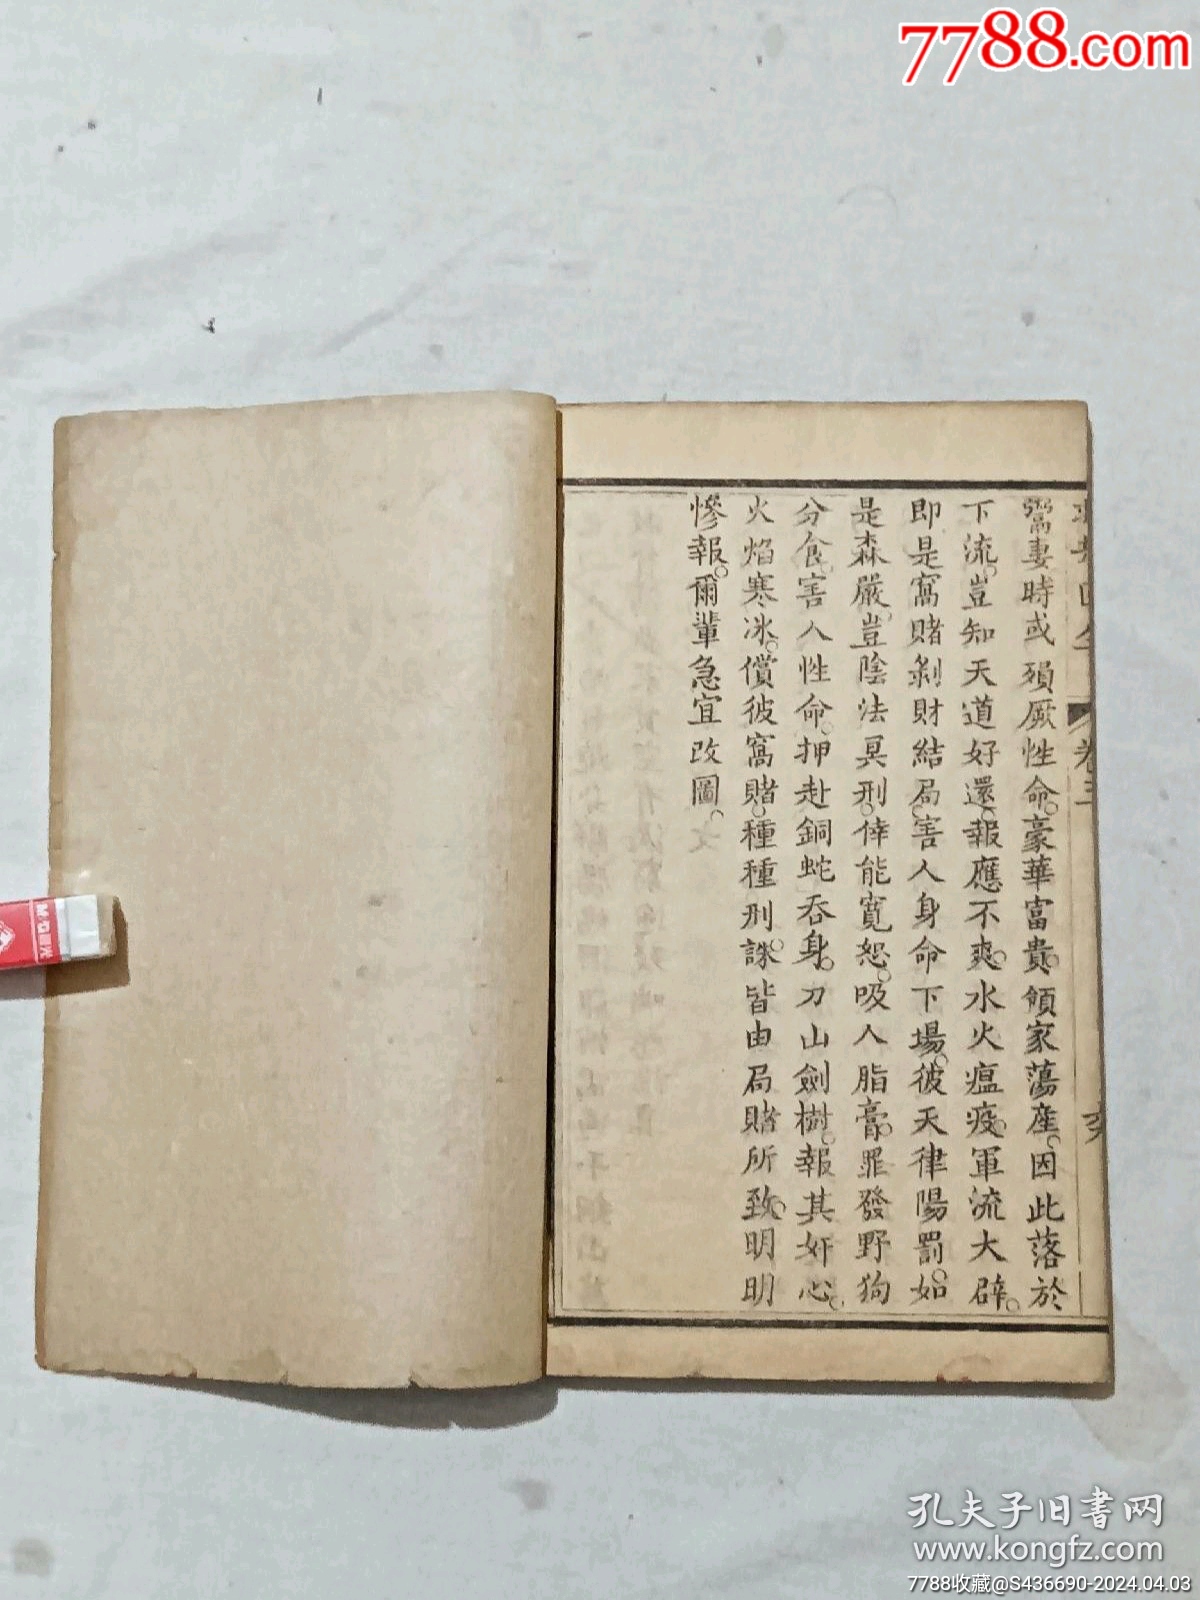 7788.com
鬻妻時或殞厥性命豪華富貴傾家蕩產因此落於
下流豈知天道好還報應不爽水火瘟疫軍流大辟
即是窩賭剝財結局害人身命下場彼天律陽罰如
是森嚴豈陰法冥刑倖能寬恕吸人脂膏罪發野狗
分食害人性命押赴銅蛇吞身刀山劍樹報其奸心
火焰寒冰償彼窩賭種種刑誅皆由局賭所致明明
慘報爾輩急宜改圖
卷三
孔夫子旧书网
www.kongfz.com
7788收藏@S436690-2024.04.03